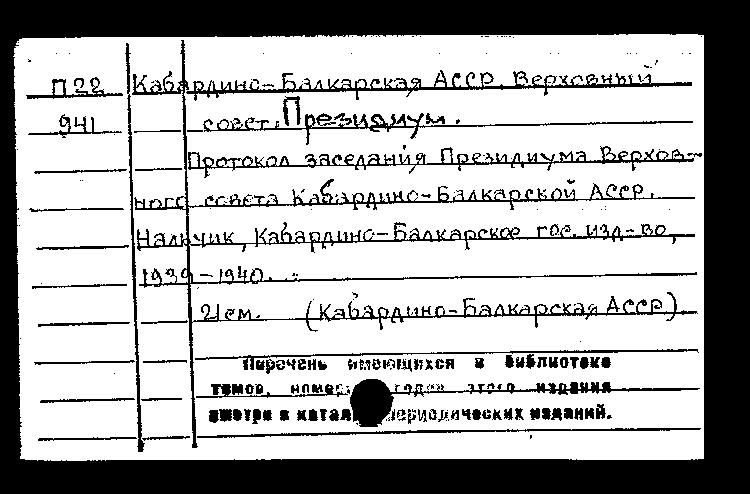 П22 Кабардино-Балкарская АССР. Верховный
941 совет. Президиум.
Протокол заседания Президиума Верхов-
ного совета Кабардино-Балкарской АССР.
Нальчик, Кабардино-Балкарское гос. изд-во,
1939-1940.
21см. (Кабардино-Балкарская АССР).
Перечень имеющихся в библиотеке
томов, номеров, годов этого издания
смотри в каталоге периодических изданий.